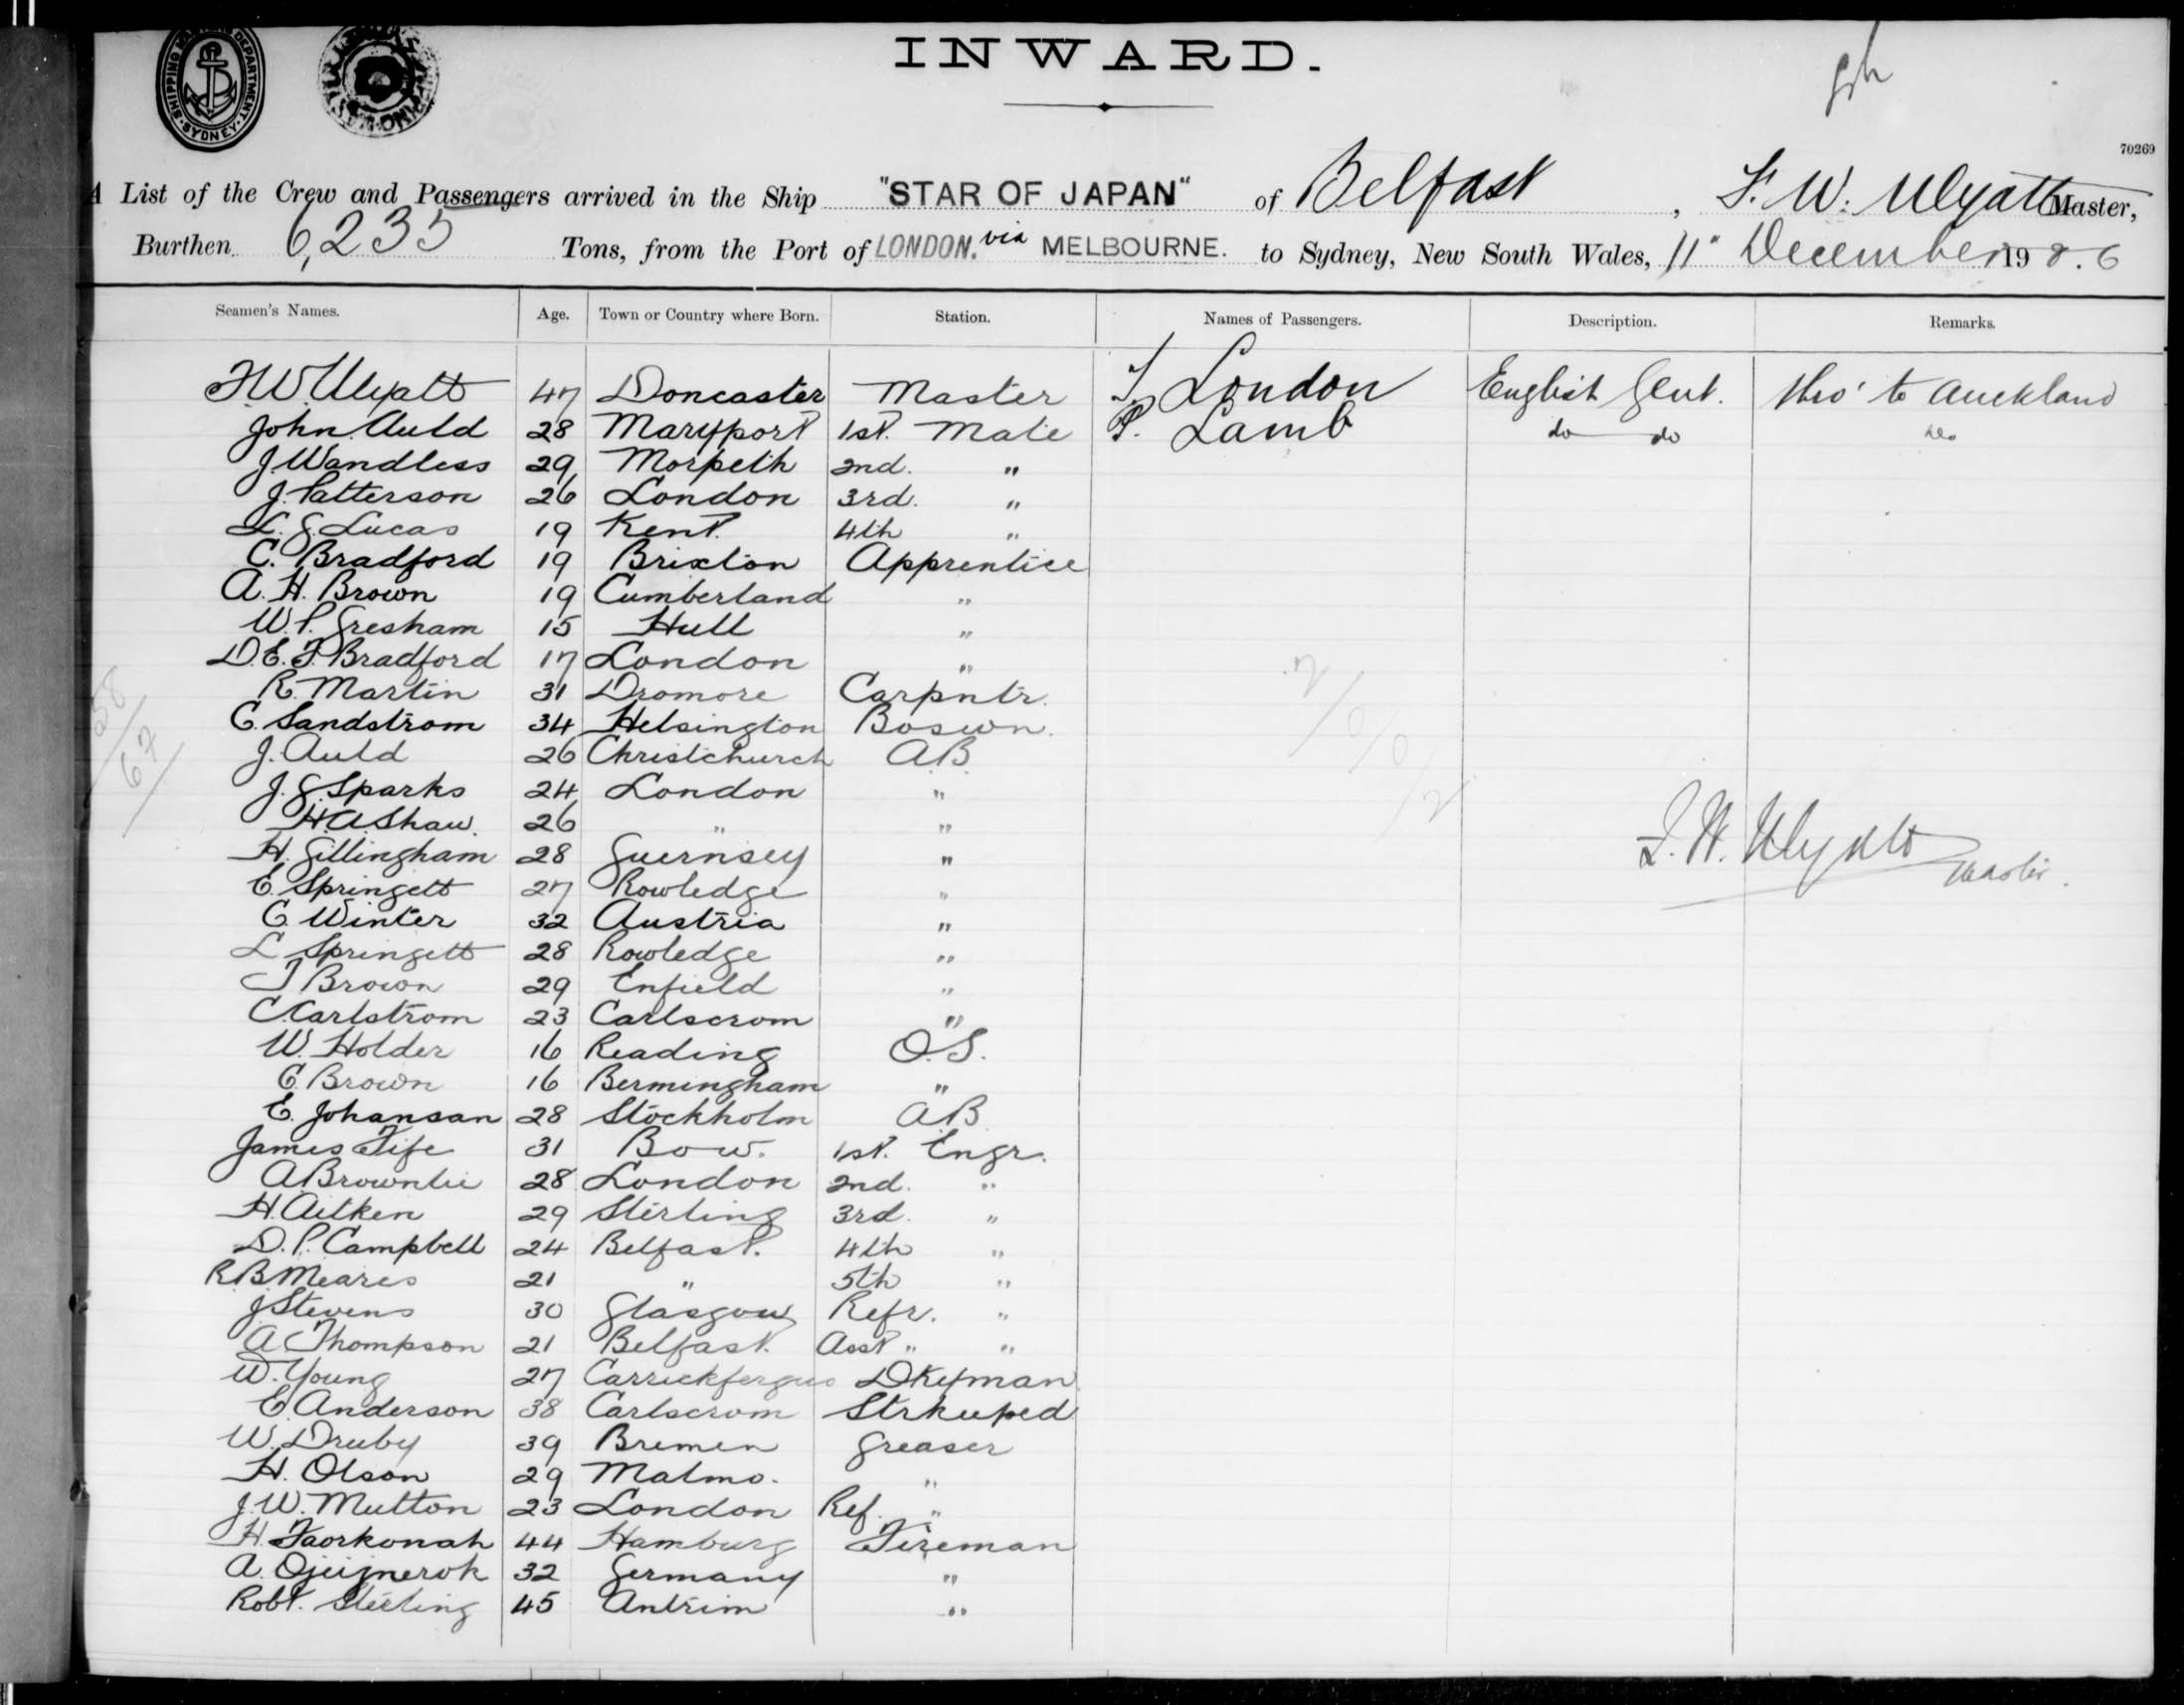 SHIPPING MASTER'S DEPARTMENT · SYDNEY ·
INWARD.
70269
A List of the Crew and Passengers arrived in the Ship "STAR OF JAPAN" of Belfast, F. W. Wyatt Master,
Burthen 6,235 Tons, from the Port of LONDON. via MELBOURNE. to Sydney, New South Wales, 11" December 190.6
Seamen's Names. Age. Town or Country where Born. Station. Names of Passengers. Description. Remarks.
F.W. Wyatt 47 Doncaster Master London English Gent. thro' to Auckland
John Auld 28 Maryport 1st. Mate P. Lamb do do do
J. Wandless 29 Morpeth 2nd. "
J. Patterson 26 London 3rd. "
L. G. Lucas 19 Kent. 4th "
C. Bradford 19 Brixton Apprentice
A. H. Brown 19 Cumberland "
W. P. Gresham 15 Hull "
D. E. F. Bradford 17 London "
R. Martin 31 Dromore Carpntr.
C. Sandstrom 34 Helsington Boswn.
J. Auld 26 Christchurch A.B.
J. G. Sparks 24 London "
H. A. Shaw. 26 " "
H. Gillingham 28 Guernsey "
E. Springett 27 Rowledge "
C. Winter 32 Austria "
L Springett 28 Rowledge "
J Brown 29 Enfield "
C. Carlstrom 23 Carlscrom "
W. Holder 16 Reading O.S.
C. Brown 16 Bermingham "
E. Johansan 28 Stockholm A.B.
James Fife 31 Bow. 1st. Engr.
A Brownlie 28 London 2nd. "
H. Aitken 29 Stirling 3rd. "
D. P. Campbell 24 Belfast. 4th "
R B Meares 21 " 5th "
J Stevens 30 Glasgow Refr. "
A Thompson 21 Belfast. Asst " "
W. Young 27 Carrickfergus Dkyman
E Anderson 38 Carlscrom Strkeeped
W. Druby 39 Bremen Greaser
H. Olson 29 Malmo. "
J. W. Mutton 23 London Ref. "
H. Faorkonah 44 Hamburg Fireman
A. 32 Germany "
Robt. Stirling 45 Antrim "
58/67/
2/0/0/2
F. W. Wyatt Master.